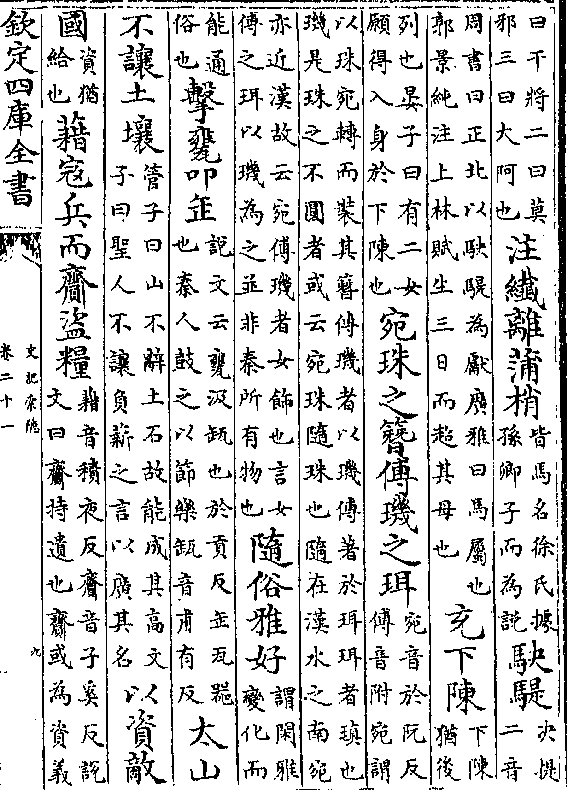 曰干將二曰莫
邪三曰大阿也
注纖離蒲梢
皆馬名徐氏據
孫卿子而為説
駃騠
决提
二音
周書曰正北以駃騠為獻廣雅曰馬屬也
郭景純注上林賦生三日而超其母也
充下陳
下陳
猶後
列也晏子曰有二女
願得入身於下陳也
宛珠之簪傅璣之珥
宛音於阮反
傅音附宛謂
以珠宛轉而裝其簪傅璣者以璣傅著於珥珥者瑱也
璣是珠之不圓者或云宛珠隨珠也隨在漢水之南宛
亦近漢故云宛傅璣者女飾也言女
傅之珥以璣為之並非秦所有物也
隨俗雅好
謂閑雅
變化而
能通
俗也
擊甕叩缶
説文云甕汲缻也於貢反缶瓦器
也秦人鼓之以節樂缻音甫有反
太山
不讓土壤
管子曰山不辭土石故能成其高文
子曰聖人不讓負薪之言以廣其名
以資敵
國
資猶
給也
藉寇兵而齎盜糧
藉音積夜反齎音子奚反說
文曰齎持遺也齎或為資義
欽定四庫全書
史記索隱
卷二十一
九